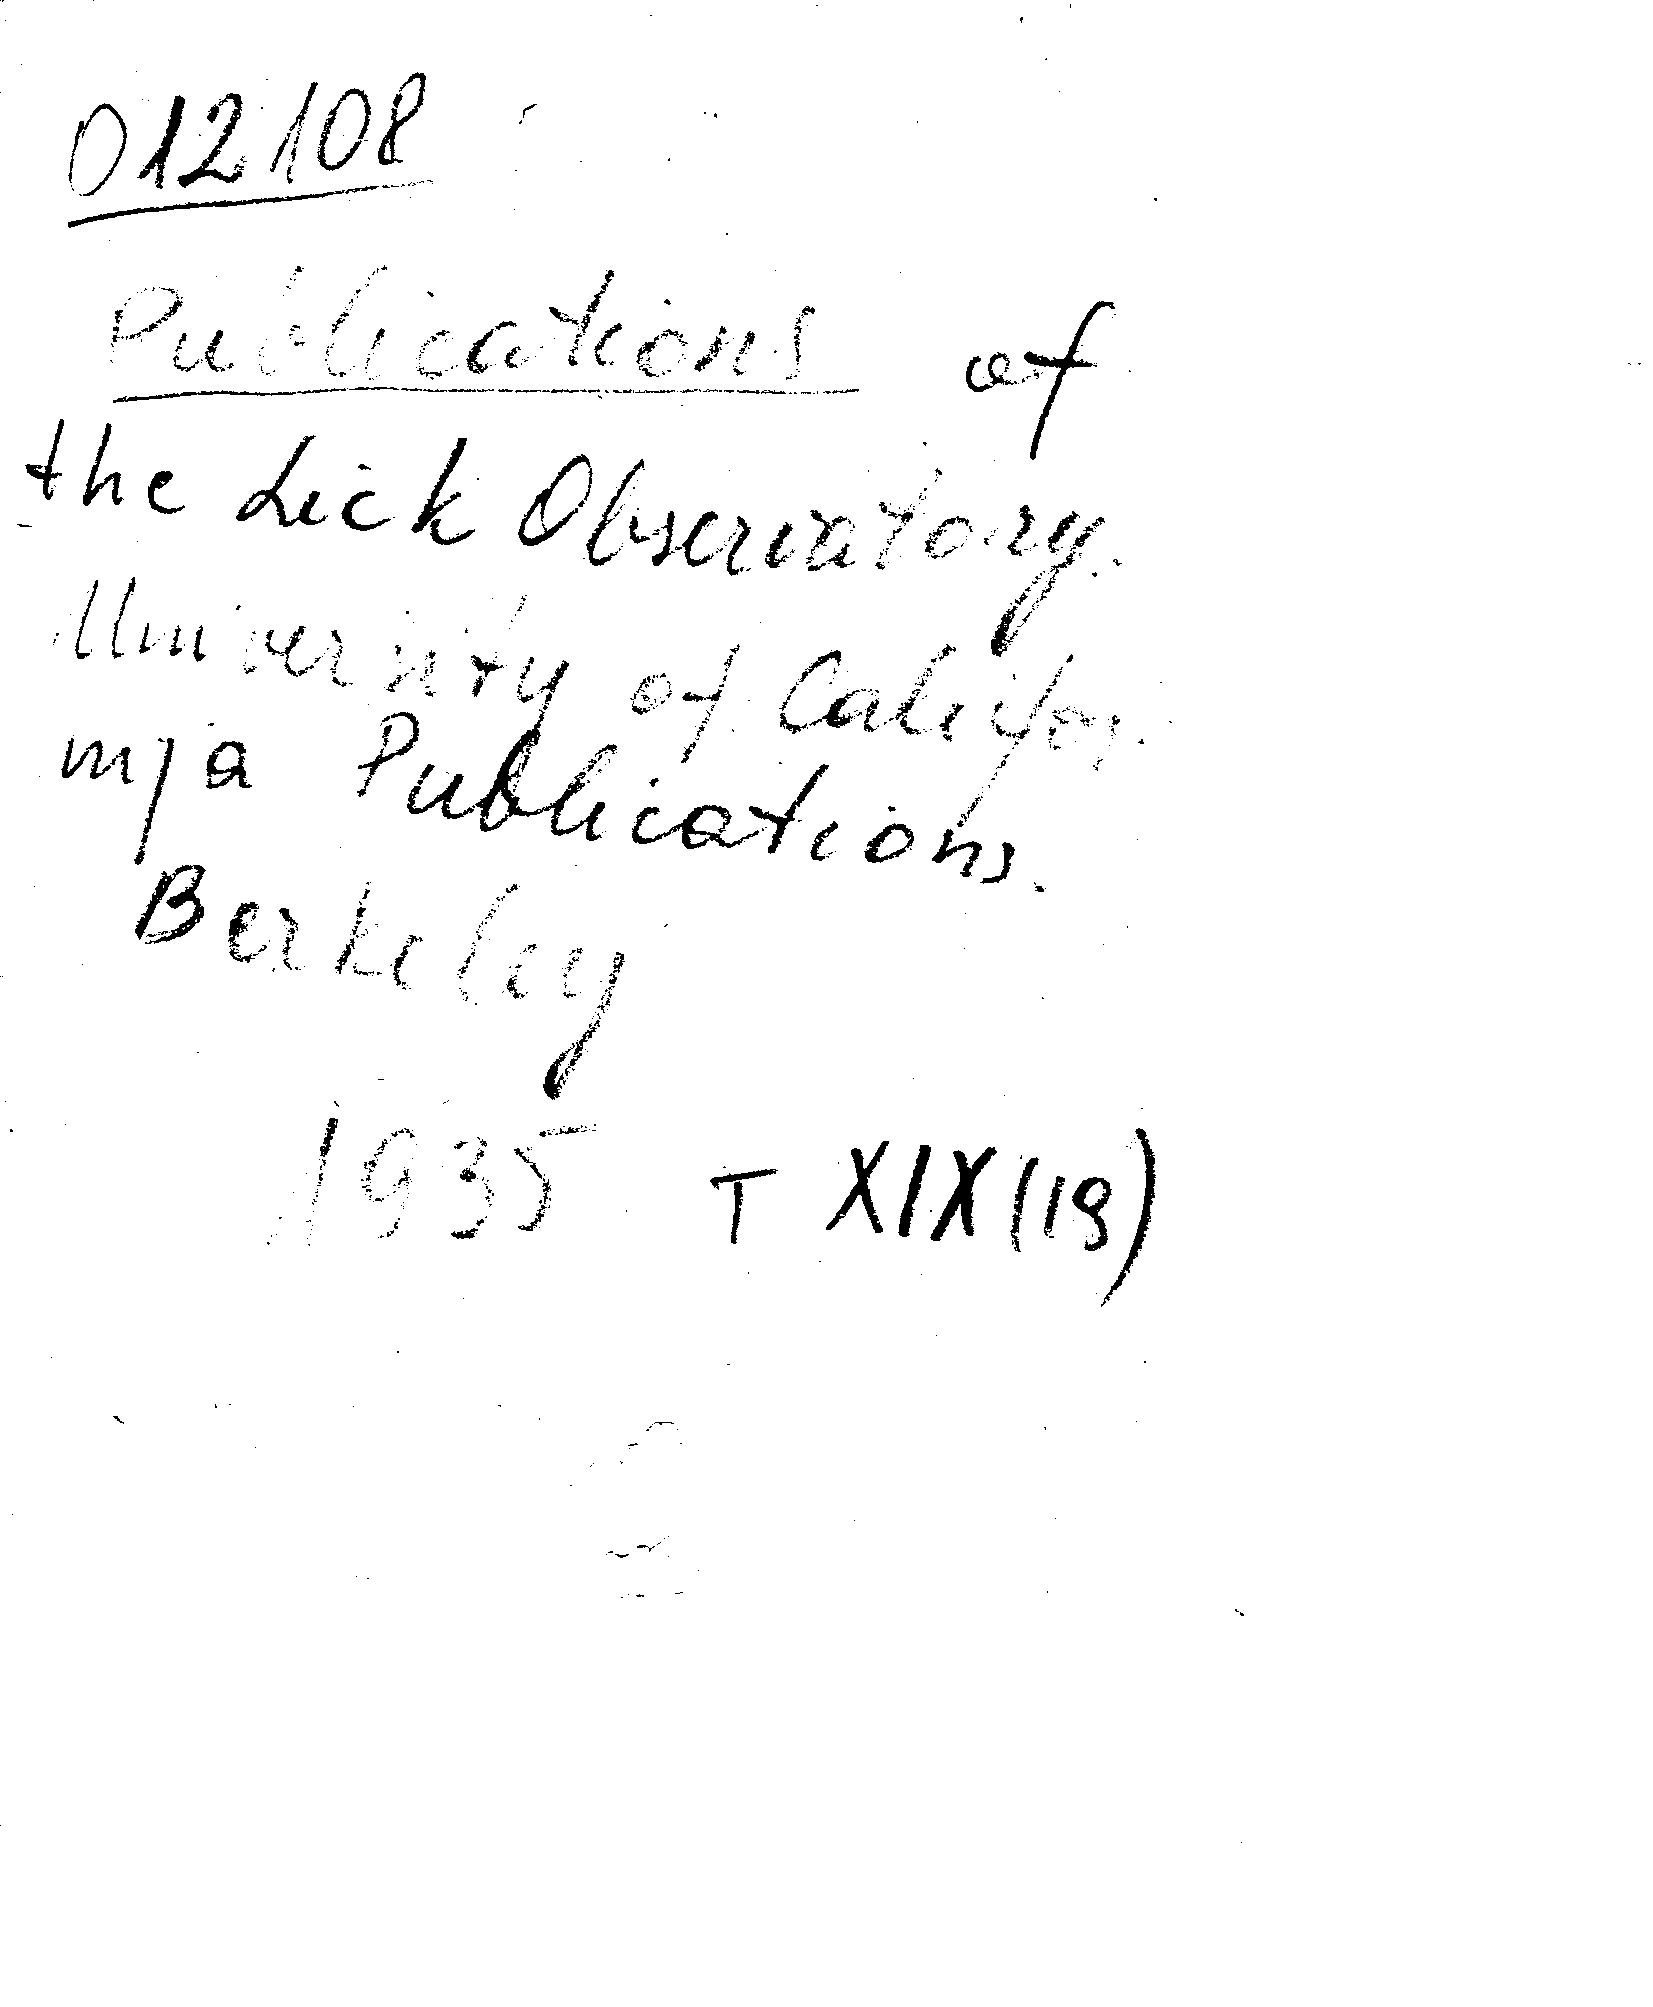 012108
Publications of
the Lick Observatory.
University of Califor-
nja Publications.
Berkeley
1935 T XIX (19)